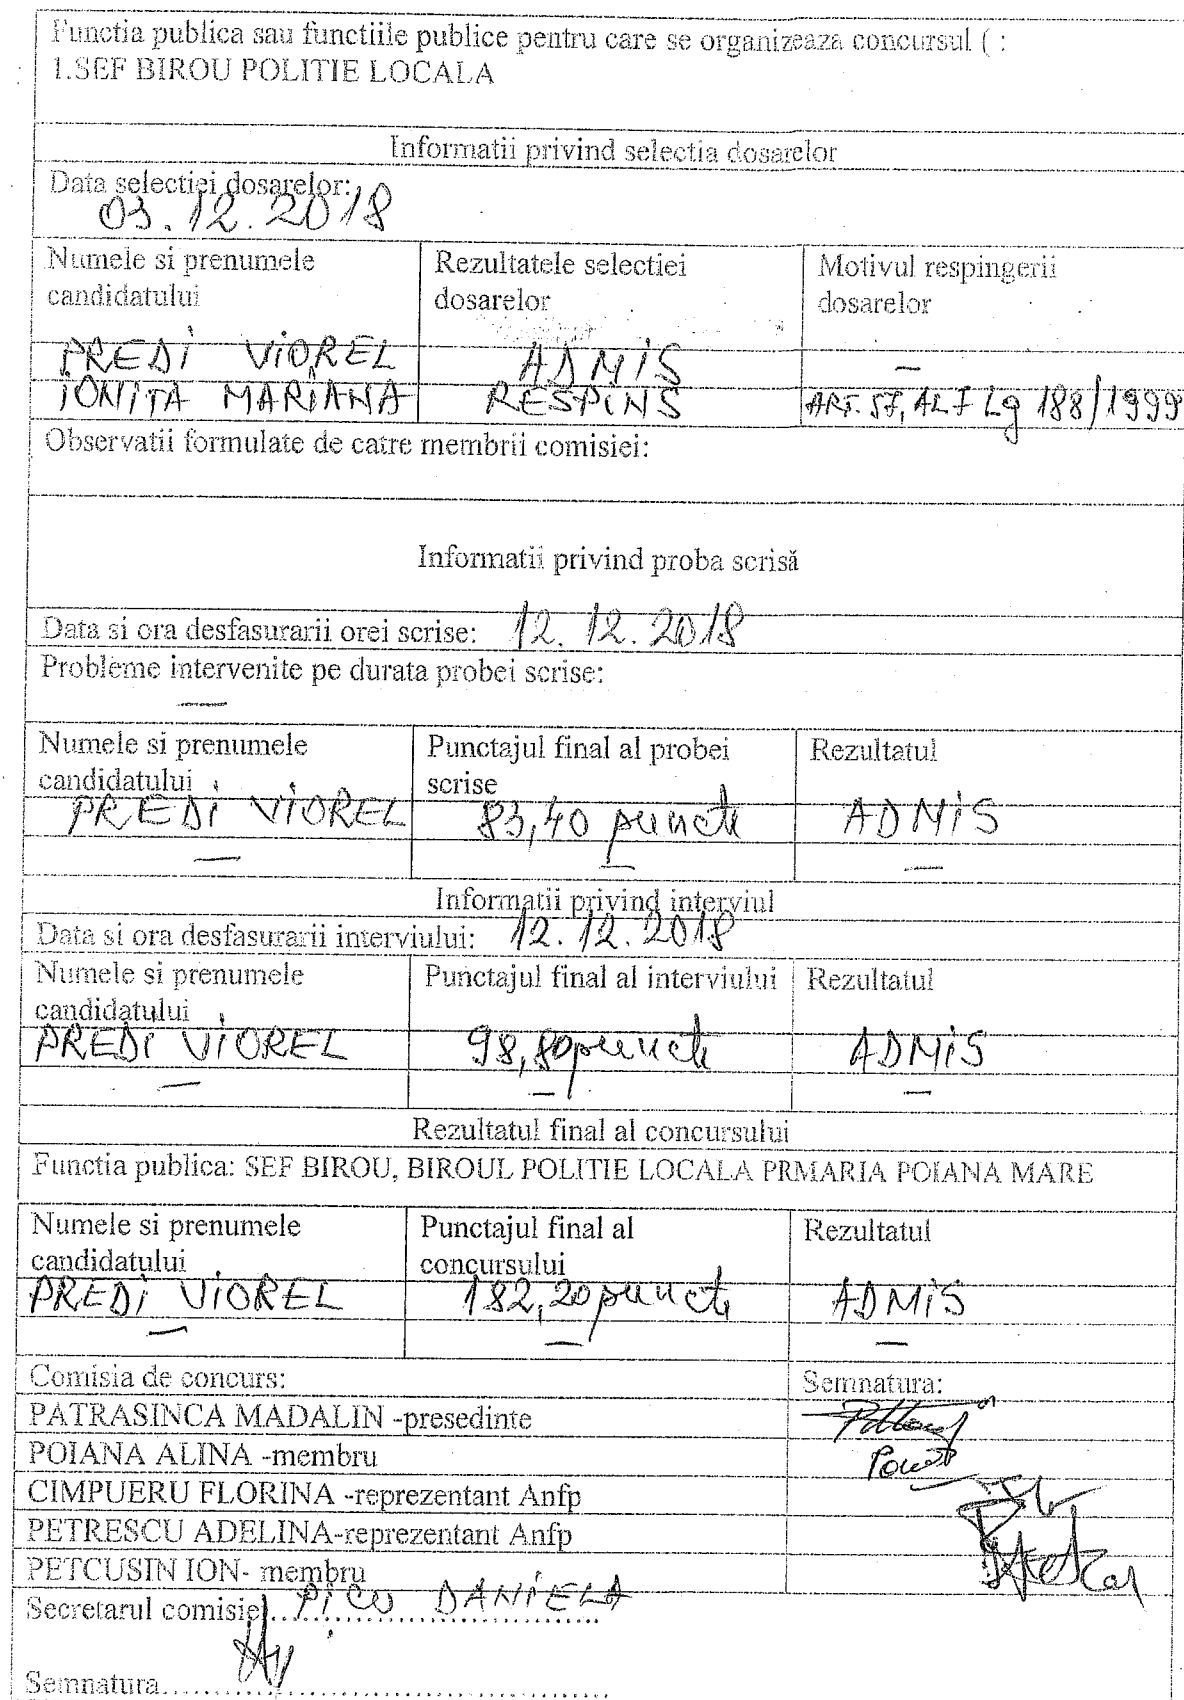 Functia publica sau functiile publice pentru care se organizeaza concursul ( :
1.SEF BIROU POLITIE LOCALA
Informatii privind selectia dosarelor
Data selectiei dosarelor:
03.12.2018
Numele si prenumele candidatului Rezultatele selectiei dosarelor Motivul respingerii dosarelor
PREDI VIOREL ADMIS —
IONITA MARIANA RESPINS ART. 57, AL 7 Lg 188/1999
Observatii formulate de catre membrii comisiei:
Informatii privind proba scrisă
Data si ora desfasurarii orei scrise: 12.12.2018
Probleme intervenite pe durata probei scrise:
—
Numele si prenumele candidatului Punctajul final al probei scrise Rezultatul
PREDI VIOREL 83,40 puncte ADMIS
— — —
Informatii privind interviul
Data si ora desfasurarii interviului: 12.12.2018
Numele si prenumele candidatului Punctajul final al interviului Rezultatul
PREDI VIOREL 98,80 puncte ADMIS
— — —
Rezultatul final al concursului
Functia publica: SEF BIROU, BIROUL POLITIE LOCALA PRMARIA POIANA MARE
Numele si prenumele candidatului Punctajul final al concursului Rezultatul
PREDI VIOREL 182,20 puncte ADMIS
— — —
Comisia de concurs: Semnatura:
PATRASINCA MADALIN -presedinte
POIANA ALINA -membru
CIMPUERU FLORINA -reprezentant Anfp
PETRESCU ADELINA-reprezentant Anfp
PETCUSIN ION- membru
Secretarul comisiei PICU DANIELA
Semnatura